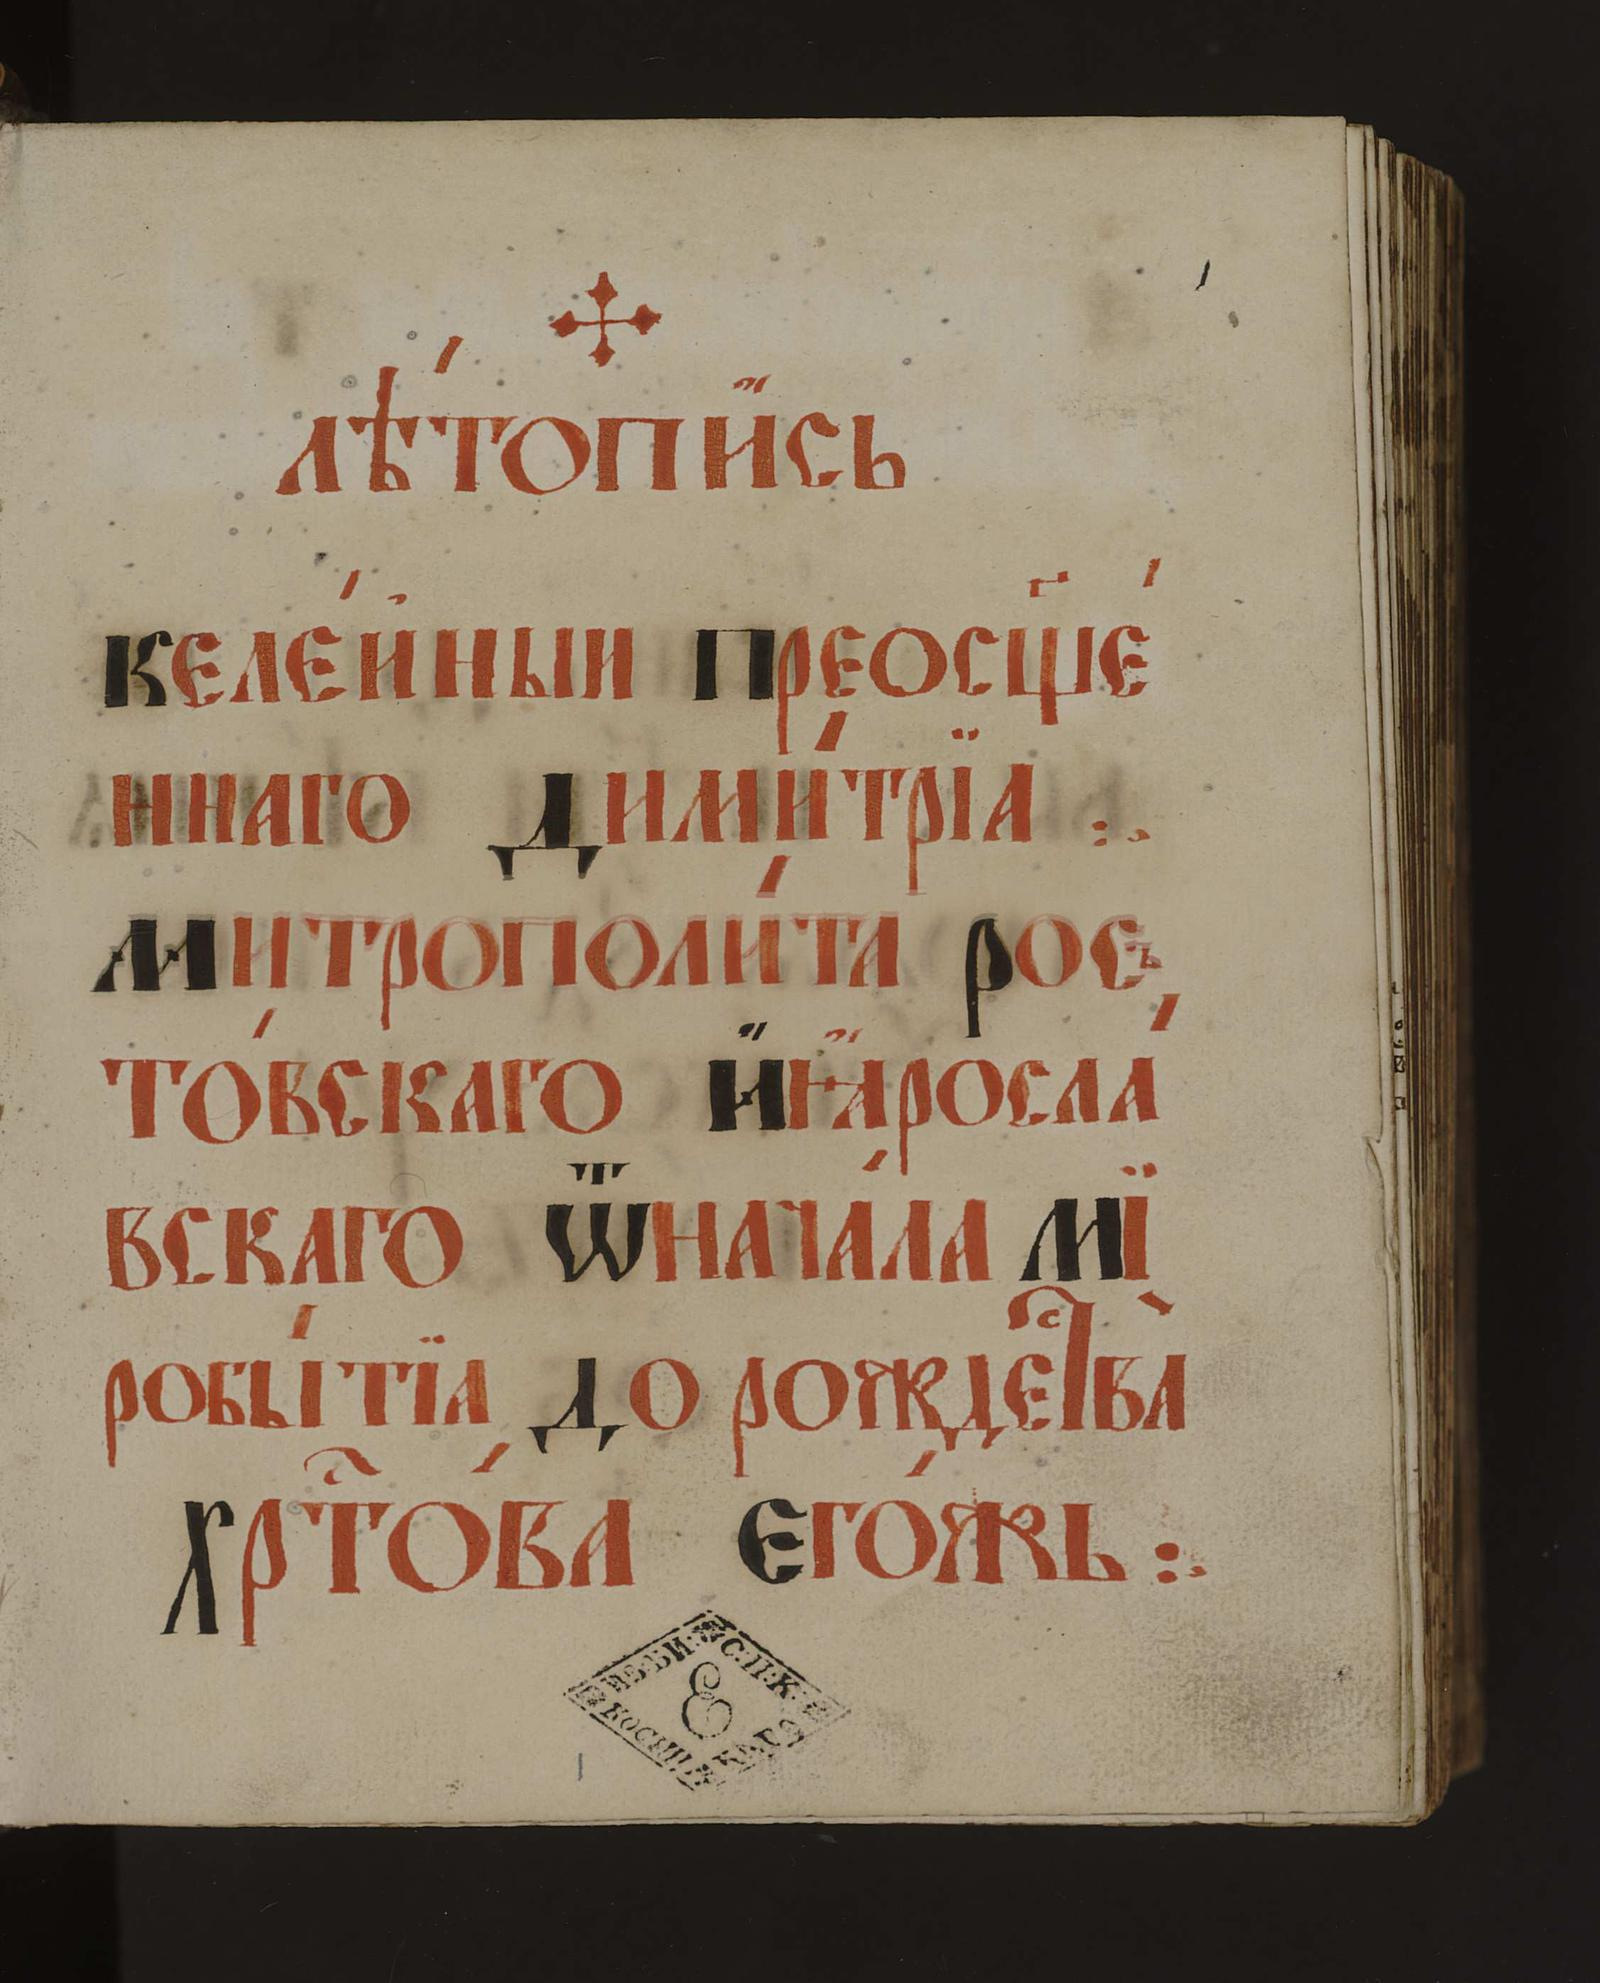 лѣ́топи҆сь
келе́йный преосщ҃е́
ннаго дими́трїа :.
митрополи́та рос
то́вскаго и҆ꙗ҆росла́
вскаго ѿнача́ла мї
робы́тїа до рождеⷭ҇тва̀
хрт҃о́ва его́жь :.
С.П.К.
Е